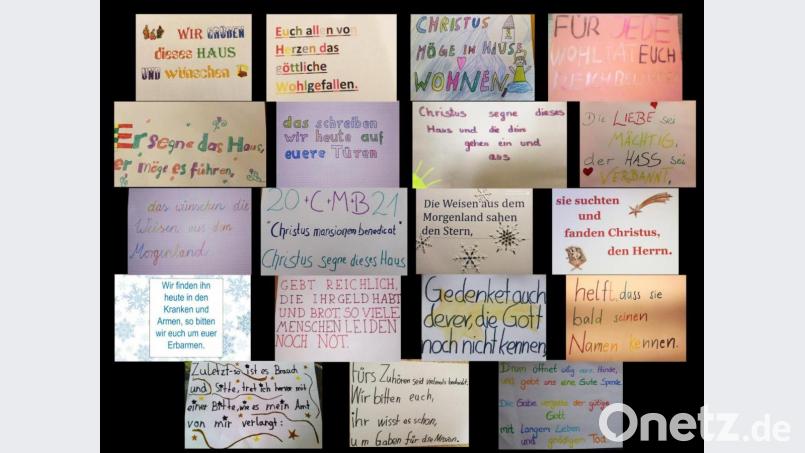 WIR GRÜßEN
dieses HAUS
UND wünschen
Euch allen von
Herzen das
göttliche
Wohlgefallen.
CHRISTUS
MÖGE IM HAUSE
WOHNEN,
FÜR JEDE
WOHLTAT EUCH
REICH BELOHNEN
Er segne das Haus,
er möge es führen,
das schreiben
wir heute auf
euere Türen
Christus segne dieses
Haus und die darin
gehen ein und
aus
Die LIEBE sei
MÄCHTIG,
der HASS sei
VERBANNT,
das wünschen die
Weisen aus dem
Morgenland.
20+C+M+B21
"Christus mansionem benedicat"
Christus segne dieses Haus
Die Weisen aus dem
Morgenland sahen
den Stern,
sie suchten
und
fanden Christus,
den Herrn.
Wir finden ihn
heute in den
Kranken und
Armen, so bitten
wir euch um euer
Erbarmen.
GEBT REICHLICH,
DIE IHR GELD HABT
UND BROT, SO VIELE
MENSCHEN LEIDEN
NOCH NOT.
Gedenket auch
derer, die Gott
noch nicht kennen,
helft, dass sie
bald seinen
Namen kennen.
Zuletzt-so ist es Brauch
und Sitte, tret ich hervor mit
einer Bitte, wie es mein Amt
von mir verlangt:
Fürs Zuhören seid vielmals bedankt.
Wir bitten euch,
ihr wisst es schon,
um Gaben für die Mission.
Drum öffnet eure Hände,
und gebt uns eine Gute Spende
Die Gabe vergelte der gütige
Gott
mit langem Leben
und gnädigem Tod
Onetz.de